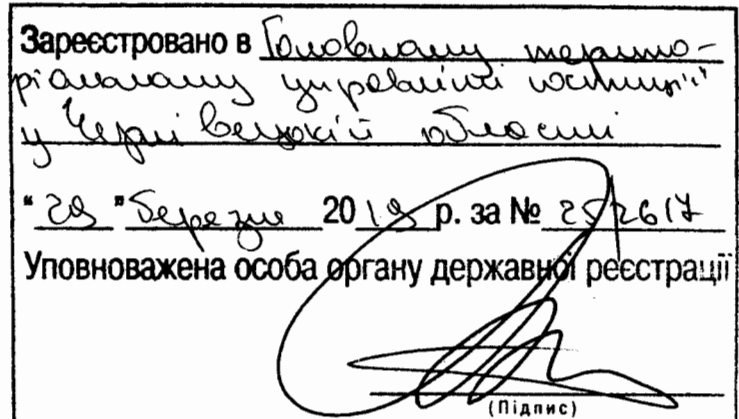 Зареєстровано в Головному терито-
ріальному управлінні юстиції
у Чернівецькій області
"29" березня 2019 р. за №
Уповноважена особа органу державної реєстрації
(Підпис)